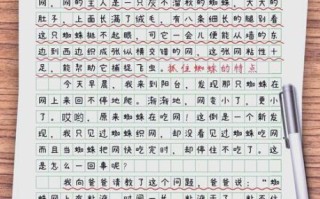 网，网的主人是一只灰不溜秋的蜘蛛，大大的
肚子，上面长满了绒毛，有八条细长的腿别看
这只蜘蛛挪不起眼，可它一会儿便能从墙的东
边到西边织成张纵横交错的网，这张网粘性十
足，能帮助它捕捉飞虫。抓住蜘蛛的特点
今天早晨，我来到阳台，发现那只蜘蛛在
网上来回不停地爬，渐渐地，网变小了，更小
了。哎哟，原来蜘蛛在吃网！这倒是一个新发
现，我只见过蜘蛛织网，却没看见过蜘蛛吃网
而且当蜘蛛把网快吃完时，却停住不吃了。这
是怎么一回事呢？
我向爸爸请教了这个问题，爸爸说："蜘